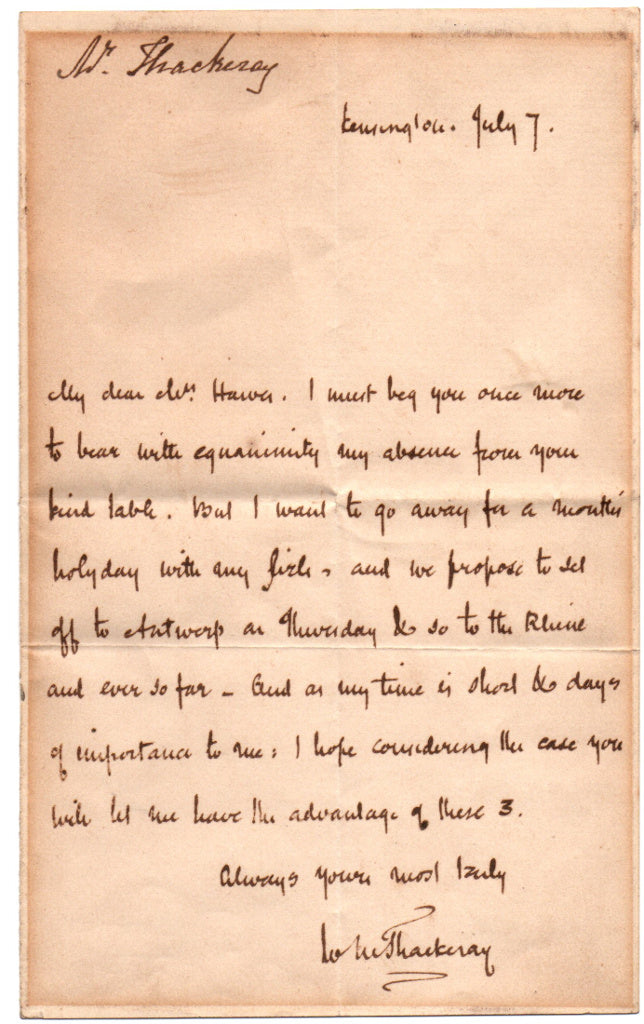 Mr. Thackeray
Kensington. July 7.
My dear Mrs. Hawes. I must beg you once more
to bear with equanimity my absence from your
kind table. But I want to go away for a month's
holyday with my girls, and we propose to set
off to Antwerp on Thursday & so to the Rhine
and ever so far - And as my time is short & days
of importance to me: I hope considering the case you
will let me have the advantage of these 3.
Always yours most truly
W M Thackeray